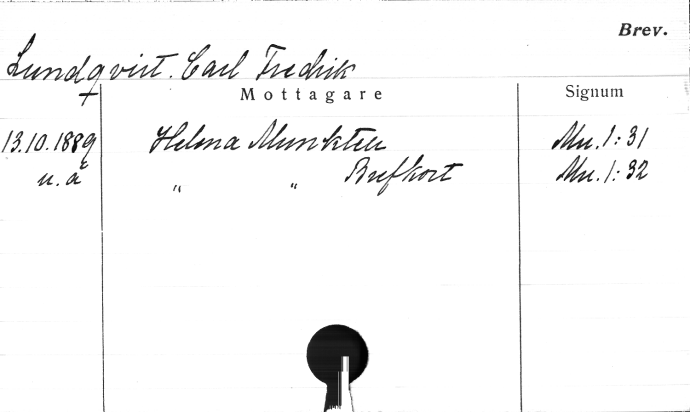 Brev.
Lundqvist. Carl Fredrik
Mottagare Signum
13.10.1889 Helena Munktell Mu.1:31
u.å " " Brefkort Mu.1:32